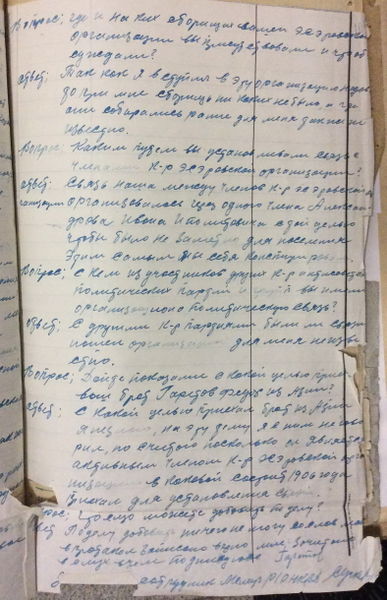 Вопрос; где и на ких сборищах вашей эсэровской
организации вы присутствовали и что об
суждали?
ответ; Так как я вступил в эту организацию недав
но при мне сборищь ни каких не было и где
они собирались ранее для меня также не
известно.
Вопрос; Каким путем вы установливали связь с
членами к-р эсэровской организации?
ответ; Связь наша между членов к-р эсэровской ор
ганизации организовалась через одного члена Алексан
дрова Ивана Иполитовича с той целью
чтобы было не заметно для населения
Этим самым мы себя конспирировали.
Вопрос; С кем из участников других к-р антисовет
политических партий и групп вы имели
организационо политическую связь?
ответ; С другими к-р партиями были ли связи
нашей организации для меня неизве
стно.
Вопрос; Дайте показания с какой целью приез
ваш брат из Азии?
ответ; С какой целью приехал брат из Азии
я не знаю, на эту тему я с ним не гово
рил, но считаю поскольку он является
активным членом к-р эсэровской орга
низации в каковой состоит 1906 года
приехал для установления связи.
Вопрос; Что еще можете дополнить по делу?
ответ По делу дополнить ничего не могу
в протокол записано верно мне зачитано
в чем и подписуюсь
сотрудник